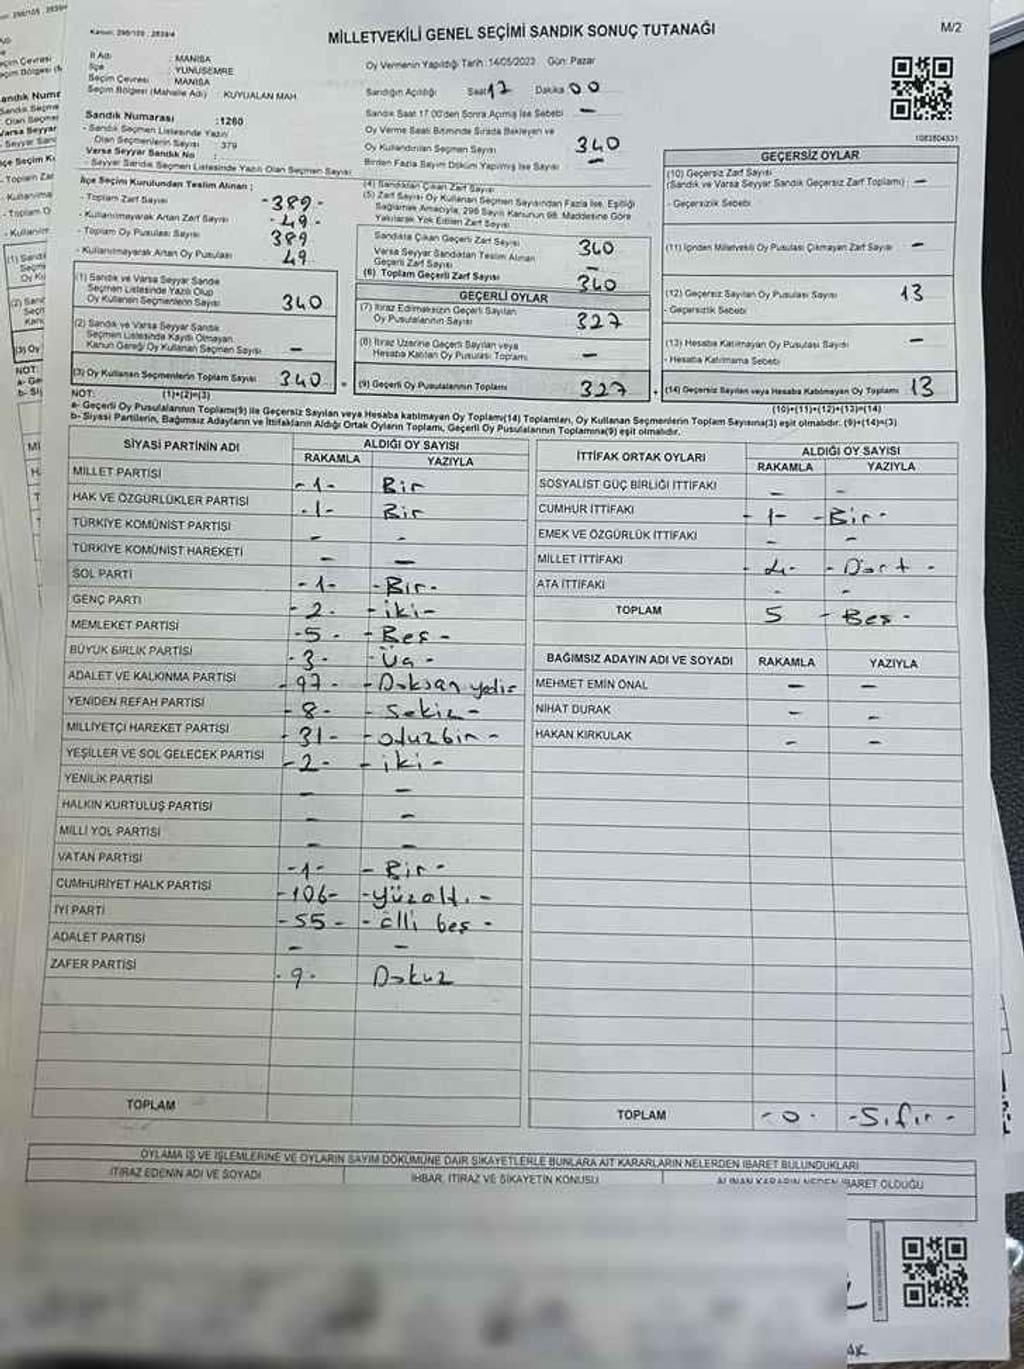 Kanun: 298/105 , 2839/4
MİLLETVEKİLİ GENEL SEÇİMİ SANDIK SONUÇ TUTANAĞI
M/2
İl Adı : MANİSA
İlçe : YUNUSEMRE
Seçim Çevresi : MANİSA
Seçim Bölgesi (Mahalle Adı) : KUYUALAN MAH.
Oy Vermenin Yapıldığı Tarih: 14/05/2023 Gün: Pazar
Sandığın Açıldığı Saat 17 Dakika 00
Sandık Saat 17:00'den Sonra Açılmış İse Sebebi -
Oy Verme Saati Bitiminde Sırada Bekleyen ve
Oy Kullandırılan Seçmen Sayısı 340
Birden Fazla Sayım Döküm Yapılmış İse Sayısı -
Sandık Numarası :1260
- Sandık Seçmen Listesinde Yazılı
Olan Seçmen Sayısı : 379
Varsa Seyyar Sandık No :
- Seyyar Sandık Seçmen Listesinde Yazılı Olan Seçmen Sayısı :
İlçe Seçim Kurulundan Teslim Alınan :
- Toplam Zarf Sayısı -389-
- Kullanılmayarak Artan Zarf Sayısı -49-
- Toplam Oy Pusulası Sayısı 389
- Kullanılmayarak Artan Oy Pusulası 49
(1) Sandık ve Varsa Seyyar Sandık
Seçmen Listesinde Yazılı Olup
Oy Kullanan Seçmenlerin Sayısı 340
(2) Sandık ve Varsa Seyyar Sandık
Seçmen Listesinde Kaydı Olmayan
Kanun Gereği Oy Kullanan Seçmen Sayısı -
(3) Oy Kullanan Seçmenlerin Toplam Sayısı 340
(1)+(2)=(3)
(4) Sandıktan Çıkan Zarf Sayısı
(5) Zarf Sayısı Oy Kullanan Seçmen Sayısından Fazla İse, Eşitliği
Sağlamak Amacıyla, 298 Sayılı Kanunun 98. Maddesine Göre
Yakılarak Yok Edilen Zarf Sayısı
Sandıkta Çıkan Geçerli Zarf Sayısı 340
Varsa Seyyar Sandıktan Teslim Alınan
Geçerli Zarf Sayısı -
(6) Toplam Geçerli Zarf Sayısı 340
GEÇERLİ OYLAR
(7) İtiraz Edilmeksizin Geçerli Sayılan
Oy Pusulalarının Sayısı 327
(8) İtiraz Üzerine Geçerli Sayılan veya
Hesaba Katılan Oy Pusulası Toplamı -
(9) Geçerli Oy Pusulalarının Toplamı 327
1083804931
GEÇERSİZ OYLAR
(10) Geçersiz Zarf Sayısı
(Sandık ve Varsa Seyyar Sandık Geçersiz Zarf Toplamı) -
- Geçersizlik Sebebi
(11) İçinden Milletvekili Oy Pusulası Çıkmayan Zarf Sayısı -
(12) Geçersiz Sayılan Oy Pusulası Sayısı 13
- Geçersizlik Sebebi
(13) Hesaba Katılmayan Oy Pusulası Sayısı -
- Hesaba Katılmama Sebebi
(14) Geçersiz Sayılan veya Hesaba Katılmayan Oy Toplamı 13
(10)+(11)+(12)+(13)=(14)
NOT:
a- Geçerli Oy Pusulalarının Toplamı(9) ile Geçersiz Sayılan veya Hesaba katılmayan Oy Toplamı(14) Toplamları, Oy Kullanan Seçmenlerin Toplam Sayısına(3) eşit olmalıdır. (9)+(14)=(3)
b- Siyasi Partilerin, Bağımsız Adayların ve İttifakların Aldığı Ortak Oyların Toplamı, Geçerli Oy Pusulalarının Toplamına(9) eşit olmalıdır.
SİYASİ PARTİNİN ADI ALDIĞI OY SAYISI
RAKAMLA YAZIYLA
MİLLET PARTİSİ -1- Bir
HAK VE ÖZGÜRLÜKLER PARTİSİ -1- Bir
TÜRKİYE KOMÜNİST PARTİSİ - -
TÜRKİYE KOMÜNİST HAREKETİ - -
SOL PARTİ -1- -Bir-
GENÇ PARTİ -2- -iki-
MEMLEKET PARTİSİ -5- -Beş-
BÜYÜK BİRLİK PARTİSİ -3- -Üç-
ADALET VE KALKINMA PARTİSİ -97- -Doksan yedi-
YENİDEN REFAH PARTİSİ -8- -Sekiz-
MİLLİYETÇİ HAREKET PARTİSİ -31- -otuzbir-
YEŞİLLER VE SOL GELECEK PARTİSİ -2- -iki-
YENİLİK PARTİSİ - -
HALKIN KURTULUŞ PARTİSİ - -
MİLLİ YOL PARTİSİ - -
VATAN PARTİSİ -1- -Bir-
CUMHURİYET HALK PARTİSİ -106- -yüzaltı-
İYİ PARTİ -55- -Elli beş-
ADALET PARTİSİ - -
ZAFER PARTİSİ -9- Dokuz
TOPLAM
İTTİFAK ORTAK OYLARI ALDIĞI OY SAYISI
RAKAMLA YAZIYLA
SOSYALİST GÜÇ BİRLİĞİ İTTİFAKI - -
CUMHUR İTTİFAKI -1- -Bir-
EMEK VE ÖZGÜRLÜK İTTİFAKI - -
MİLLET İTTİFAKI -4- -Dört-
ATA İTTİFAKI - -
TOPLAM 5 -Beş-
BAĞIMSIZ ADAYIN ADI VE SOYADI RAKAMLA YAZIYLA
MEHMET EMİN ÖNAL - -
NİHAT DURAK - -
HAKAN KIRKULAK - -
TOPLAM -0- -Sıfır-
OYLAMA İŞ VE İŞLEMLERİNE VE OYLARIN SAYIM DÖKÜMÜNE DAİR ŞİKAYETLERLE BUNLARA AİT KARARLARIN NELERDEN İBARET BULUNDUKLARI
İTİRAZ EDENİN ADI VE SOYADI İHBAR, İTİRAZ VE ŞİKAYETİN KONUSU ALINAN KARARIN NEDEN İBARET OLDUĞU